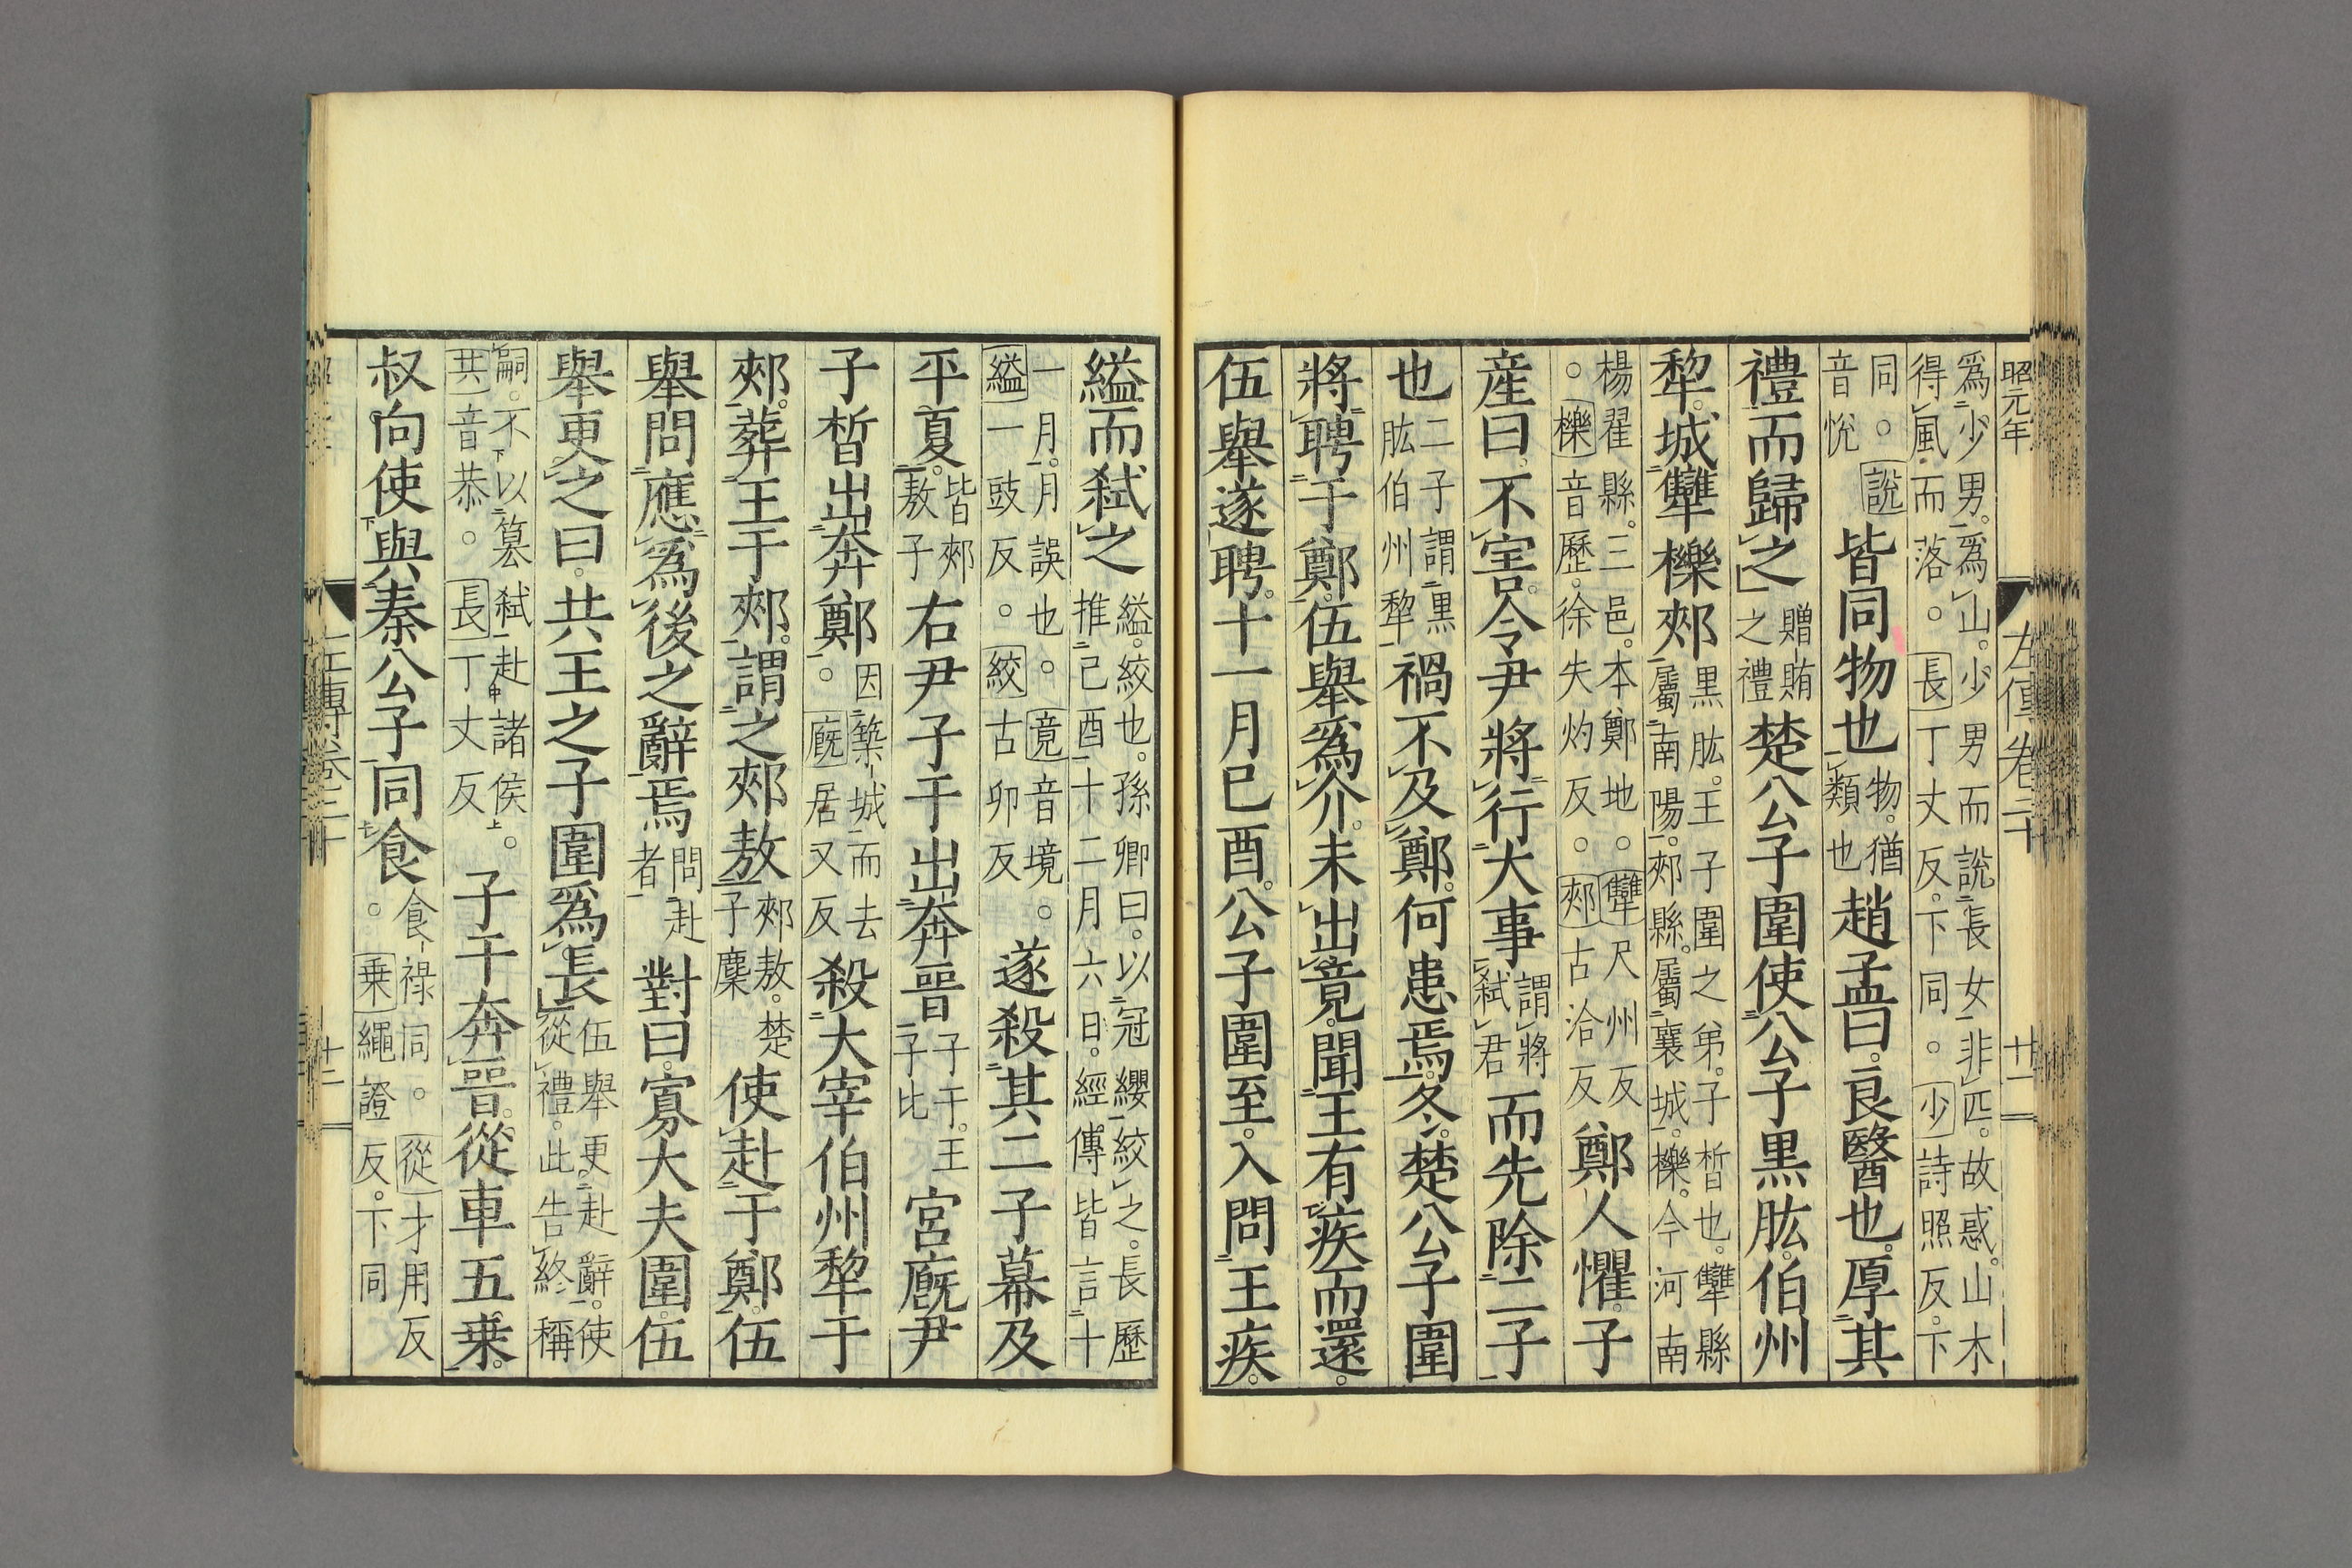 昭元年　左傳卷二十　十一
爲少男。爲山。少男而說長女非匹。故惑。山木得風而落。長丁丈反。下同。少詩照反。下
同。說音悅皆同物也物。猶類也趙孟曰。良醫也。厚其
禮而歸之贈賄之禮楚公子圍使公子黑肱。伯州
犂。城犫櫟郟黑肱。王子圍之弟。子晳也。犫縣屬南陽。郟縣。屬襄城。櫟。今河南
楊翟縣。三邑。本鄭地。犫尺州反。櫟音歷。徐失灼反。郟古洽反鄭人懼。子
産曰。不害。令尹將行大事謂將弑君而先除二子
也二子謂黑肱伯州犂禍不及鄭。何患焉。冬。楚公子圍
將聘于鄭。伍舉爲介。未出竟。聞王有疾而還。
伍舉遂聘。十一月已酉。公子圍至。入問王疾。
縊而弑之縊。絞也。孫卿曰。以冠纓絞之。長歷推己酉十二月六日。經傳皆言十
一月。月誤也。竟音境。縊一豉反。絞古卯反遂殺其二子幕及
平夏。皆郟敖子右尹子干出奔晉子干。王子比宮廐尹
子晳出奔鄭因築城而去。廐居又反殺大宰伯州犂于
郟。葬王于郟。謂之郟敖郟敖。楚子麇使赴于鄭。伍
舉問應爲後之辭焉問赴者對曰。寡大夫圍。伍
舉更之曰。共王之子圍爲長伍舉更赴辭。使從禮。此告終稱
嗣。不以簒弑赴諸侯。共音恭。長丁丈反子干奔晉。從車五乗。
叔向使與秦公子同食食祿同。從才用反。乗繩證反。下同
左傳卷二十　十二